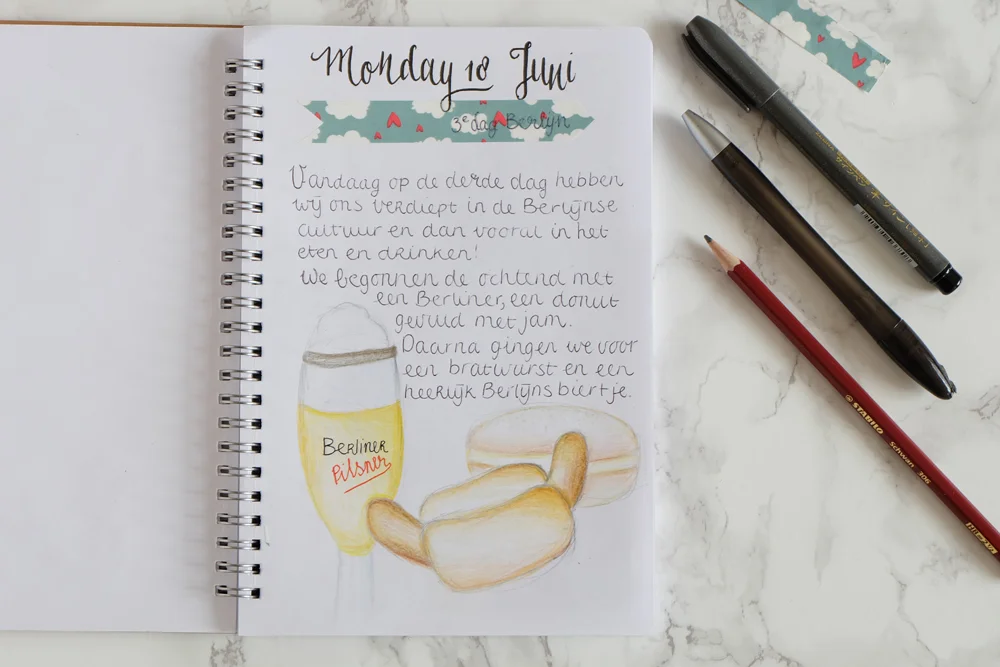 Monday 18 Juni
3e dag Berlijn
Vandaag op de derde dag hebben
wij ons verdiept in de Berlijnse
cultuur en dan vooral in het
eten en drinken!
We begonnen de ochtend met
een Berliner, een donut
gevuld met jam.
Daarna gingen we voor
een bratwurst en een
heerlijk Berlijns biertje.
Berliner
Pilsner
STABILO Schwan 306